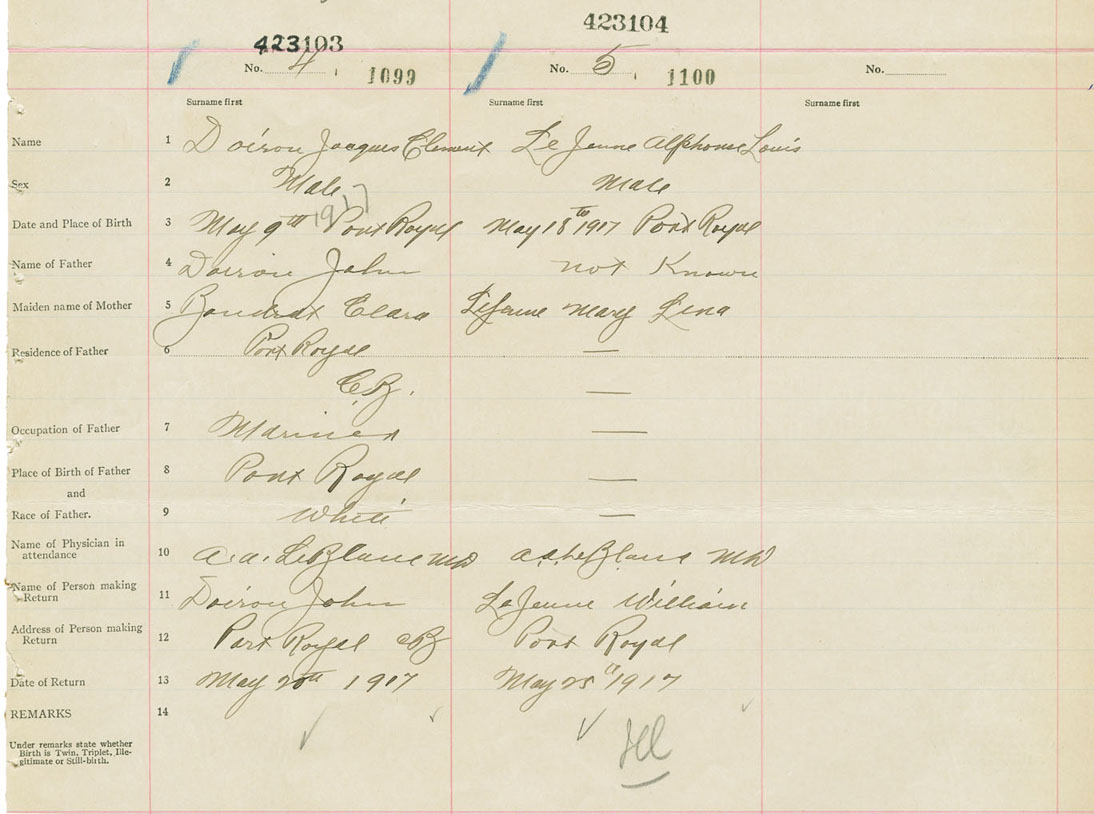 423103 423104
No. 4 1099 No. 5 1100 No.
Surname first Surname first Surname first
Name 1 Doiron Jacques Clement LeJeune Alphonse Louis
Sex 2 Male Male
1917
Date and Place of Birth 3 May 9th Port Royal May 18th 1917 Port Royal
Name of Father 4 Doiron John not Known
Maiden name of Mother 5 Boudrot Clara LeJeune Mary Lena
Residence of Father 6 Port Royal —
C.B. —
Occupation of Father 7 Mariner —
Place of Birth of Father 8 Port Royal —
and
Race of Father. 9 White —
Name of Physician in
attendance 10 A. A. LeBlanc MD A A LeBlanc MD
Name of Person making
Return 11 Doiron John LeJeune William
Address of Person making
Return 12 Port Royal CB Port Royal
Date of Return 13 May 20th 1917 May 25th 1917
REMARKS 14
Ill
Under remarks state whether
Birth is Twin, Triplet, Ille-
gitimate or Still-birth.